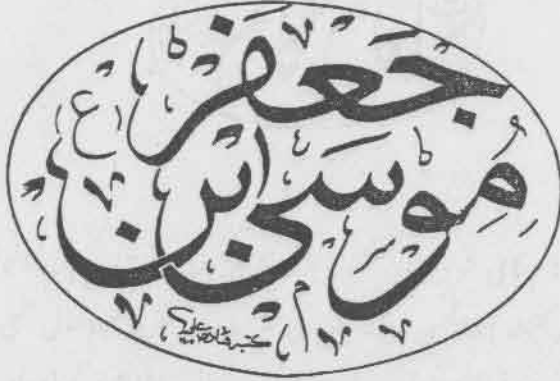 مُوسَى ابن
جَعفَر (ع)